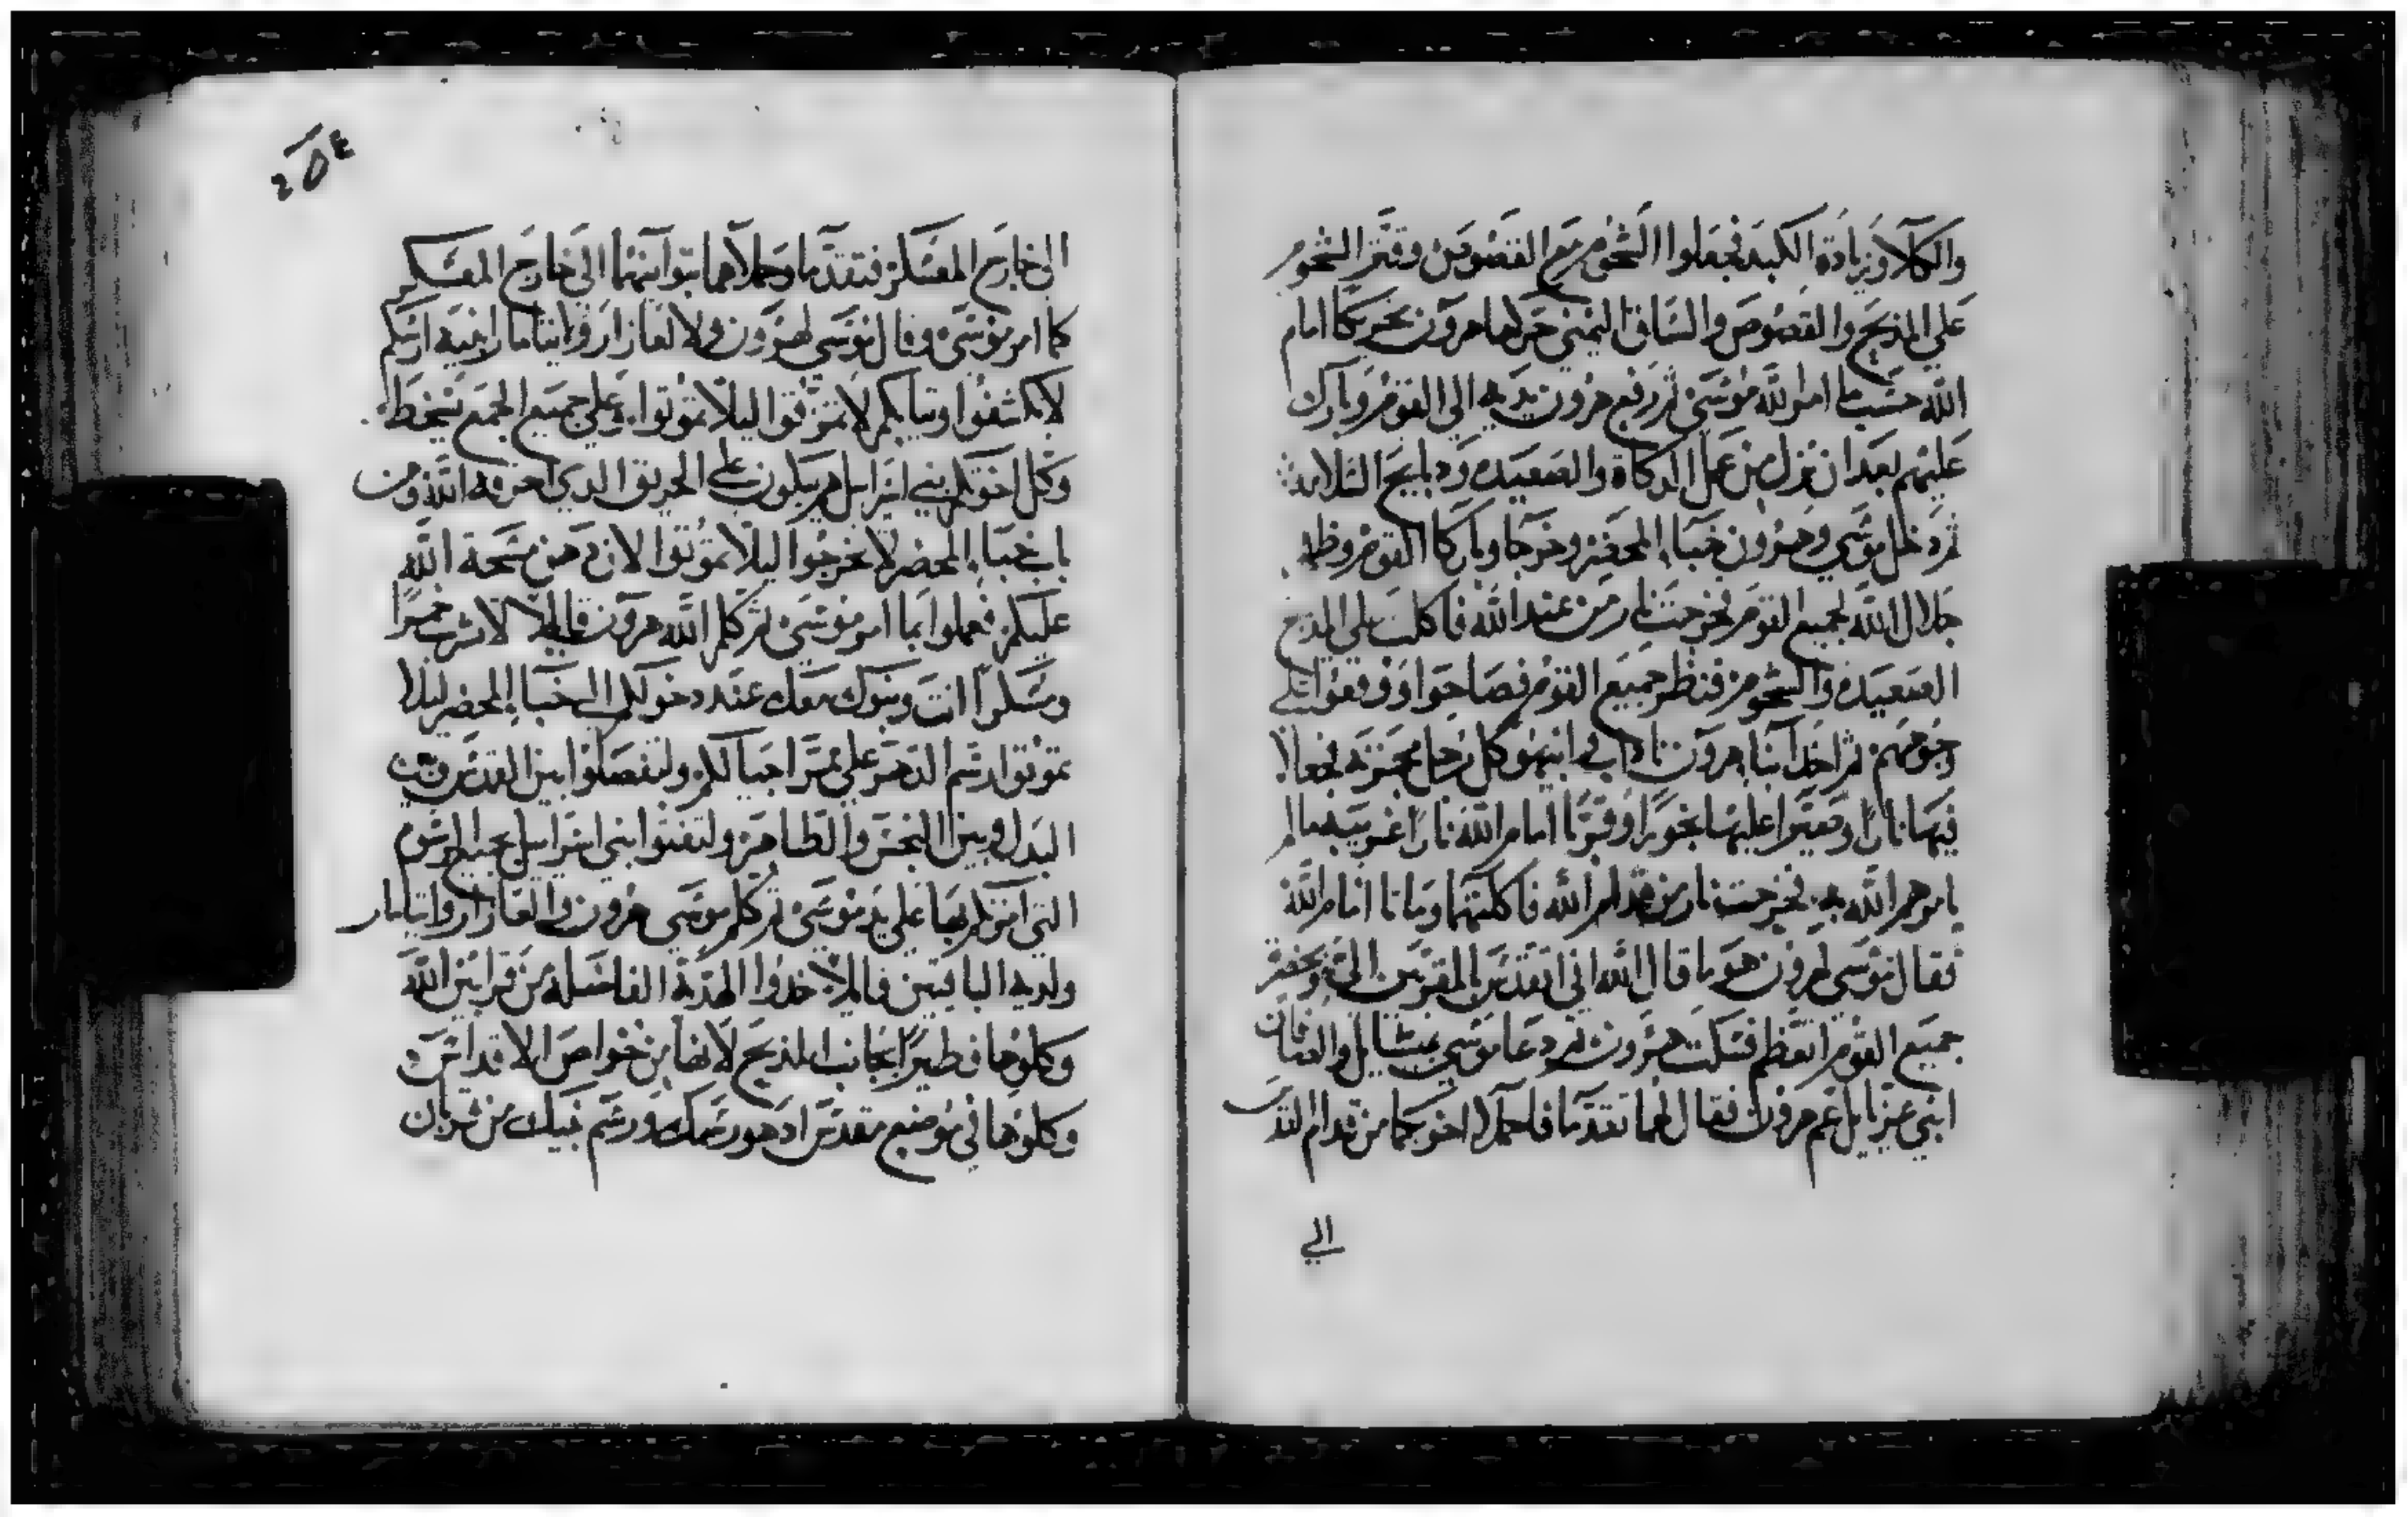 والكلا وزيادة الكبد فجعلوا الشحوم مع القصوص وقتر الشحوم
علي المذبح والقصوص والساق اليمني حركها هرون تحريكا امام
الله حسب ما امر الله موسي ثم رفع هرون يديه الي القوم وبارك
عليهم بعد ان نزل من عمل الدكاة والصعيده ودبايح السلامه
ثم دخل موسي وهرون خباء المحضر وخرجا وباركا القوم وظهر
جلال الله لجميع القوم فخرجت نار من عند الله فاكلت علي المذبح
الصعيده والشحوم فنظر جميع القوم فصاحوا ووقعوا علي
وجوههم ثم اخذ ابنا هرون ناداب وابيهو كل رجل مجمرته فجعلا
فيها نارا وقترا عليها بخورا وقربا امام الله نارا غريبه ما لم
يامرهم الله به فخرجت نار من قدام الله فاكلتهما وماتا امام الله
فقال موسي لهرون هو ما قال الله اني اتقدس بالمقربين الي وبحضر
جميع القوم اتعظم فسكت هرون ثم دعا موسي ميشايل والصافان
ابني عزيايل عم هرون فقال لهما تقدما فاحملا اخويكما من قدام القدس
الي
٢٥٤
الي خارج المعسكر فتقدما وحملاهما بتوانيهما الي خارج المعسكر
كما امر موسي وقال موسي لهرون ولالعازار وايتامار ابنيه ارسكم
لا تكشفوا وتيابكم لا تمزقوا ليلا تموتوا وعلي جميع الجمع يسخط
وكل اخوتكم بني اسرايل هم يبكون علي الحريق الدي احرقه الله ومن
باب خباء المحضر لا تخرجوا ليلا تموتوا لان دهن مسحة الله
عليكم فعملوا بما امر موسي ثم كلم الله هرون قايلا لا تشرب خمرا
ومسكرا انت وبنوك معك عند دخولكم الي خباء المحضر ليلا
تموتوا رسم الدهر علي ممر اجيالكم ولتفصلوا بين القدس وبين
البدل وبين النجس والطاهر ولتفتوا بني اسرايل بجميع الرسوم
التي امرتكم بها علي يد موسي ثم كلم موسي هرون والعازار وايتامار
ولديه الباقيين قايلا خدوا الهدية الفاضله من قرابين الله
وكلوها فطيرا بجانب المذبح لانها من خواص الاقداس
وكلوها في موضع مقدس اد هو رسمك ورسم بنيك من قربان